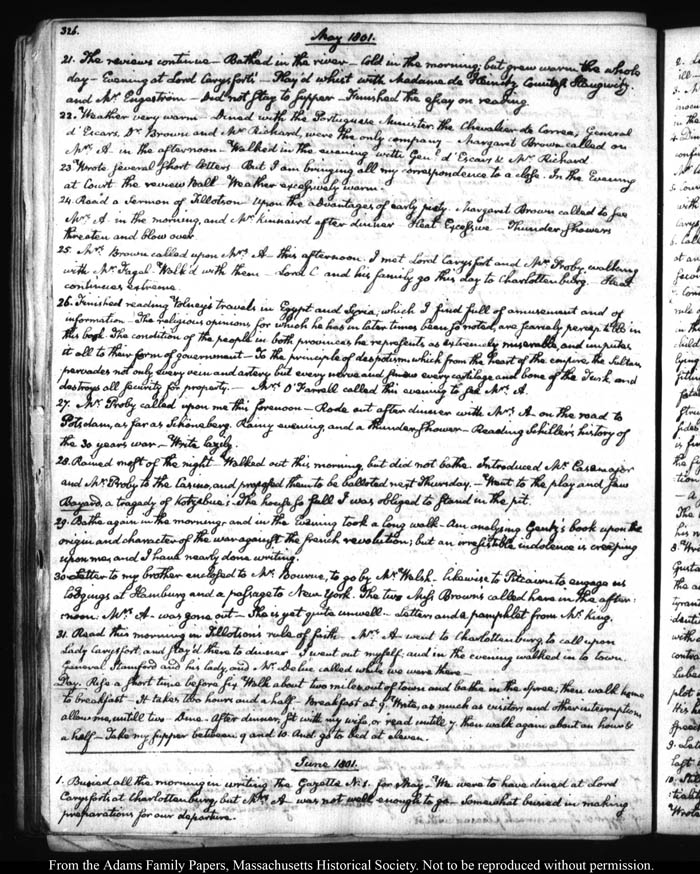 326.
May 1801.
21. The reviews continue — Bathed in the river — Cold in the morning; but grew warm the whole
day — Evening at Lord Carysfort's — Play'd whist with Madame de Countess Haugwitz,
and Mr. Engeström — Did not stay to supper — Finished the essay on reading.
22. Weather very warm — Dined with the Portuguese Minister. the Chevalier de Correa; General
d'Escars, Dr. Brown and Mr. Richard, were the only company — Margaret Brown called on
Mrs. A. in the afternoon — Walked in the evening with Genl. d'Escars & Mr. Richard
23 Wrote several short letters — But I am bringing all my correspondence to a close. In the Evening
at Court the review Ball Weather excessively warm.
24. Read a Sermon of Tillotson upon the advantages of early piety — Margaret Brown called to see
Mrs. A. in the morning, and Mr. Kinnaird after dinner Heat Excessive — Thunder showers
threaten and blow over.
25. Mrs. Brown called upon Mrs. A — this afternoon. I met Lord Carysfort and Mr. Proby, walking
with Mr. Fagal. Walk'd with them — Lord C and his family go this day to Charlottenburg. Heat
continues extreme.
26. Finished reading Volney's travels in Egypt and Syria, which I find full of amusement and of
information — The religious opinions for which he has in later times been so noted, are scarcely perceptible in
this book. The condition of the people in both provinces he represents as extremely miserable, and imputes
it all to their form of government — To the principle of despotism, which from the heart of the empire the Sultan,
pervades not only every vein and artery but every nerve and sinew every cartilage and bone of the Turk. and
destroys all security for property. — Mrs. O'Farrell called this evening to see Mrs. A.
27. Mr. Proby called upon me this forenoon — Rode out after dinner with Mrs. A on the road to
Potsdam, as far as Schöneberg. Rainy evening, and a thunder shower — Reading Schiller's history of
the 30 years war — Write lazily.
28. Rained most of the night — Walked out this morning, but did not bathe. Introduced Mr. Casamajor
and Mr. Proby to the Casino, and proposed them to be balloted next Thursday. — Went to the play and saw
Bayard, a tragedy of Kotzebue's. The house so full I was obliged to stand in the pit.
29. Bathe again in the morning, and in the Evening took a long walk — Am analysing Gentz's book upon the
origin and character of the war against the french revolution; but an irresistible indolence is creeping
upon me, and I have nearly done writing.
30. Letter to my brother enclosed to Mr. Bourne, to go by Mr. Welsh. — Likewise to Pitcairn to engage us
lodgings at Hamburg and a passage to New York. The two Miss Browns called here in the after-
noon. Mrs. A — was gone out — She is yet quite unwell — Letters and a pamphlet from Mr. King.
31. Read this morning in Tillotson's rule of faith. Mrs. A — went to Charlottenburg, to call upon
Lady Carysfort, and stay'd there to dinner I went out myself; and in the evening walked in to town.
General Stamford and his lady, and Mr. Delue called while we were there —
Day. Rise a short time before six Walk about two miles out of town and bathe in the Spree; then walk home
to breakfast — It takes two hours and a half — Breakfast at 9. Write, as much as visitors and other interruptions
allow me, untill two — Dine. After dinner, sit with my wife, or read untill 7. then walk again about an hour &
a half — Take my supper between 9 and 10. And go to bed at eleven.
June 1801.
1. Busied all the morning in writing the Gazette N. 1. for May — We were to have dined at Lord
Carysfort's at Charlottenburg, but Mrs. A — was not well enough to go — Somewhat busied in making
preparations for our departure.
From the Adams Family Papers, Massachusetts Historical Society. Not to be reproduced without permission.